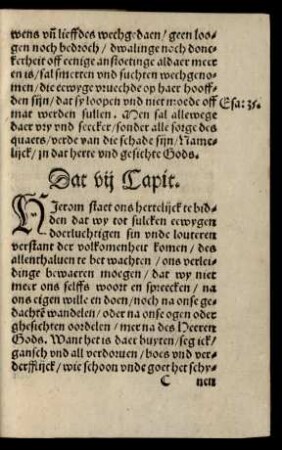 wens vn̄ lieffdes wechgedaen / geen loo-
gen noch bedroch / dwalinge noch donc-
kerheit off eenige anstoetinge aldaer meer
en is / sal smerten vnd suchten wechgeno-
men / die eewyge vruechde op haer hooff-
den sijn / dat sy loopen vnd niet moede off
mat werden sullen. Men sal allewege
daer vry vnd seecker / sonder alle sorge des
quaets / verde van die schade sijn / Name-
lijck / in dat herte vnd gesichte Gods.
Esa: 35.
Dat vij Capit.
HIerom staet ons hertelijck te bid-
den dat wy tot sulcken eewygen
doerluchtigen sin vnde louteren
verstant der volkomenheit komen / des
allenthaluen te het wachten / ons verlei-
dinge bewaeren moegen / dat wy niet
meer ons selffs woort en spreecken / na
ons eigen wille en doen / noch na onse ge-
dachtē wandelen / oder na onse ogen oder
ghesichten oordelen / mer na des Heeren
Gods. Want het is daer buyten / seg ick /
gansch vnd all verdoruen / boes vnd ver-
derfflijck / wie schoon vnde goet het schy-
C
nen